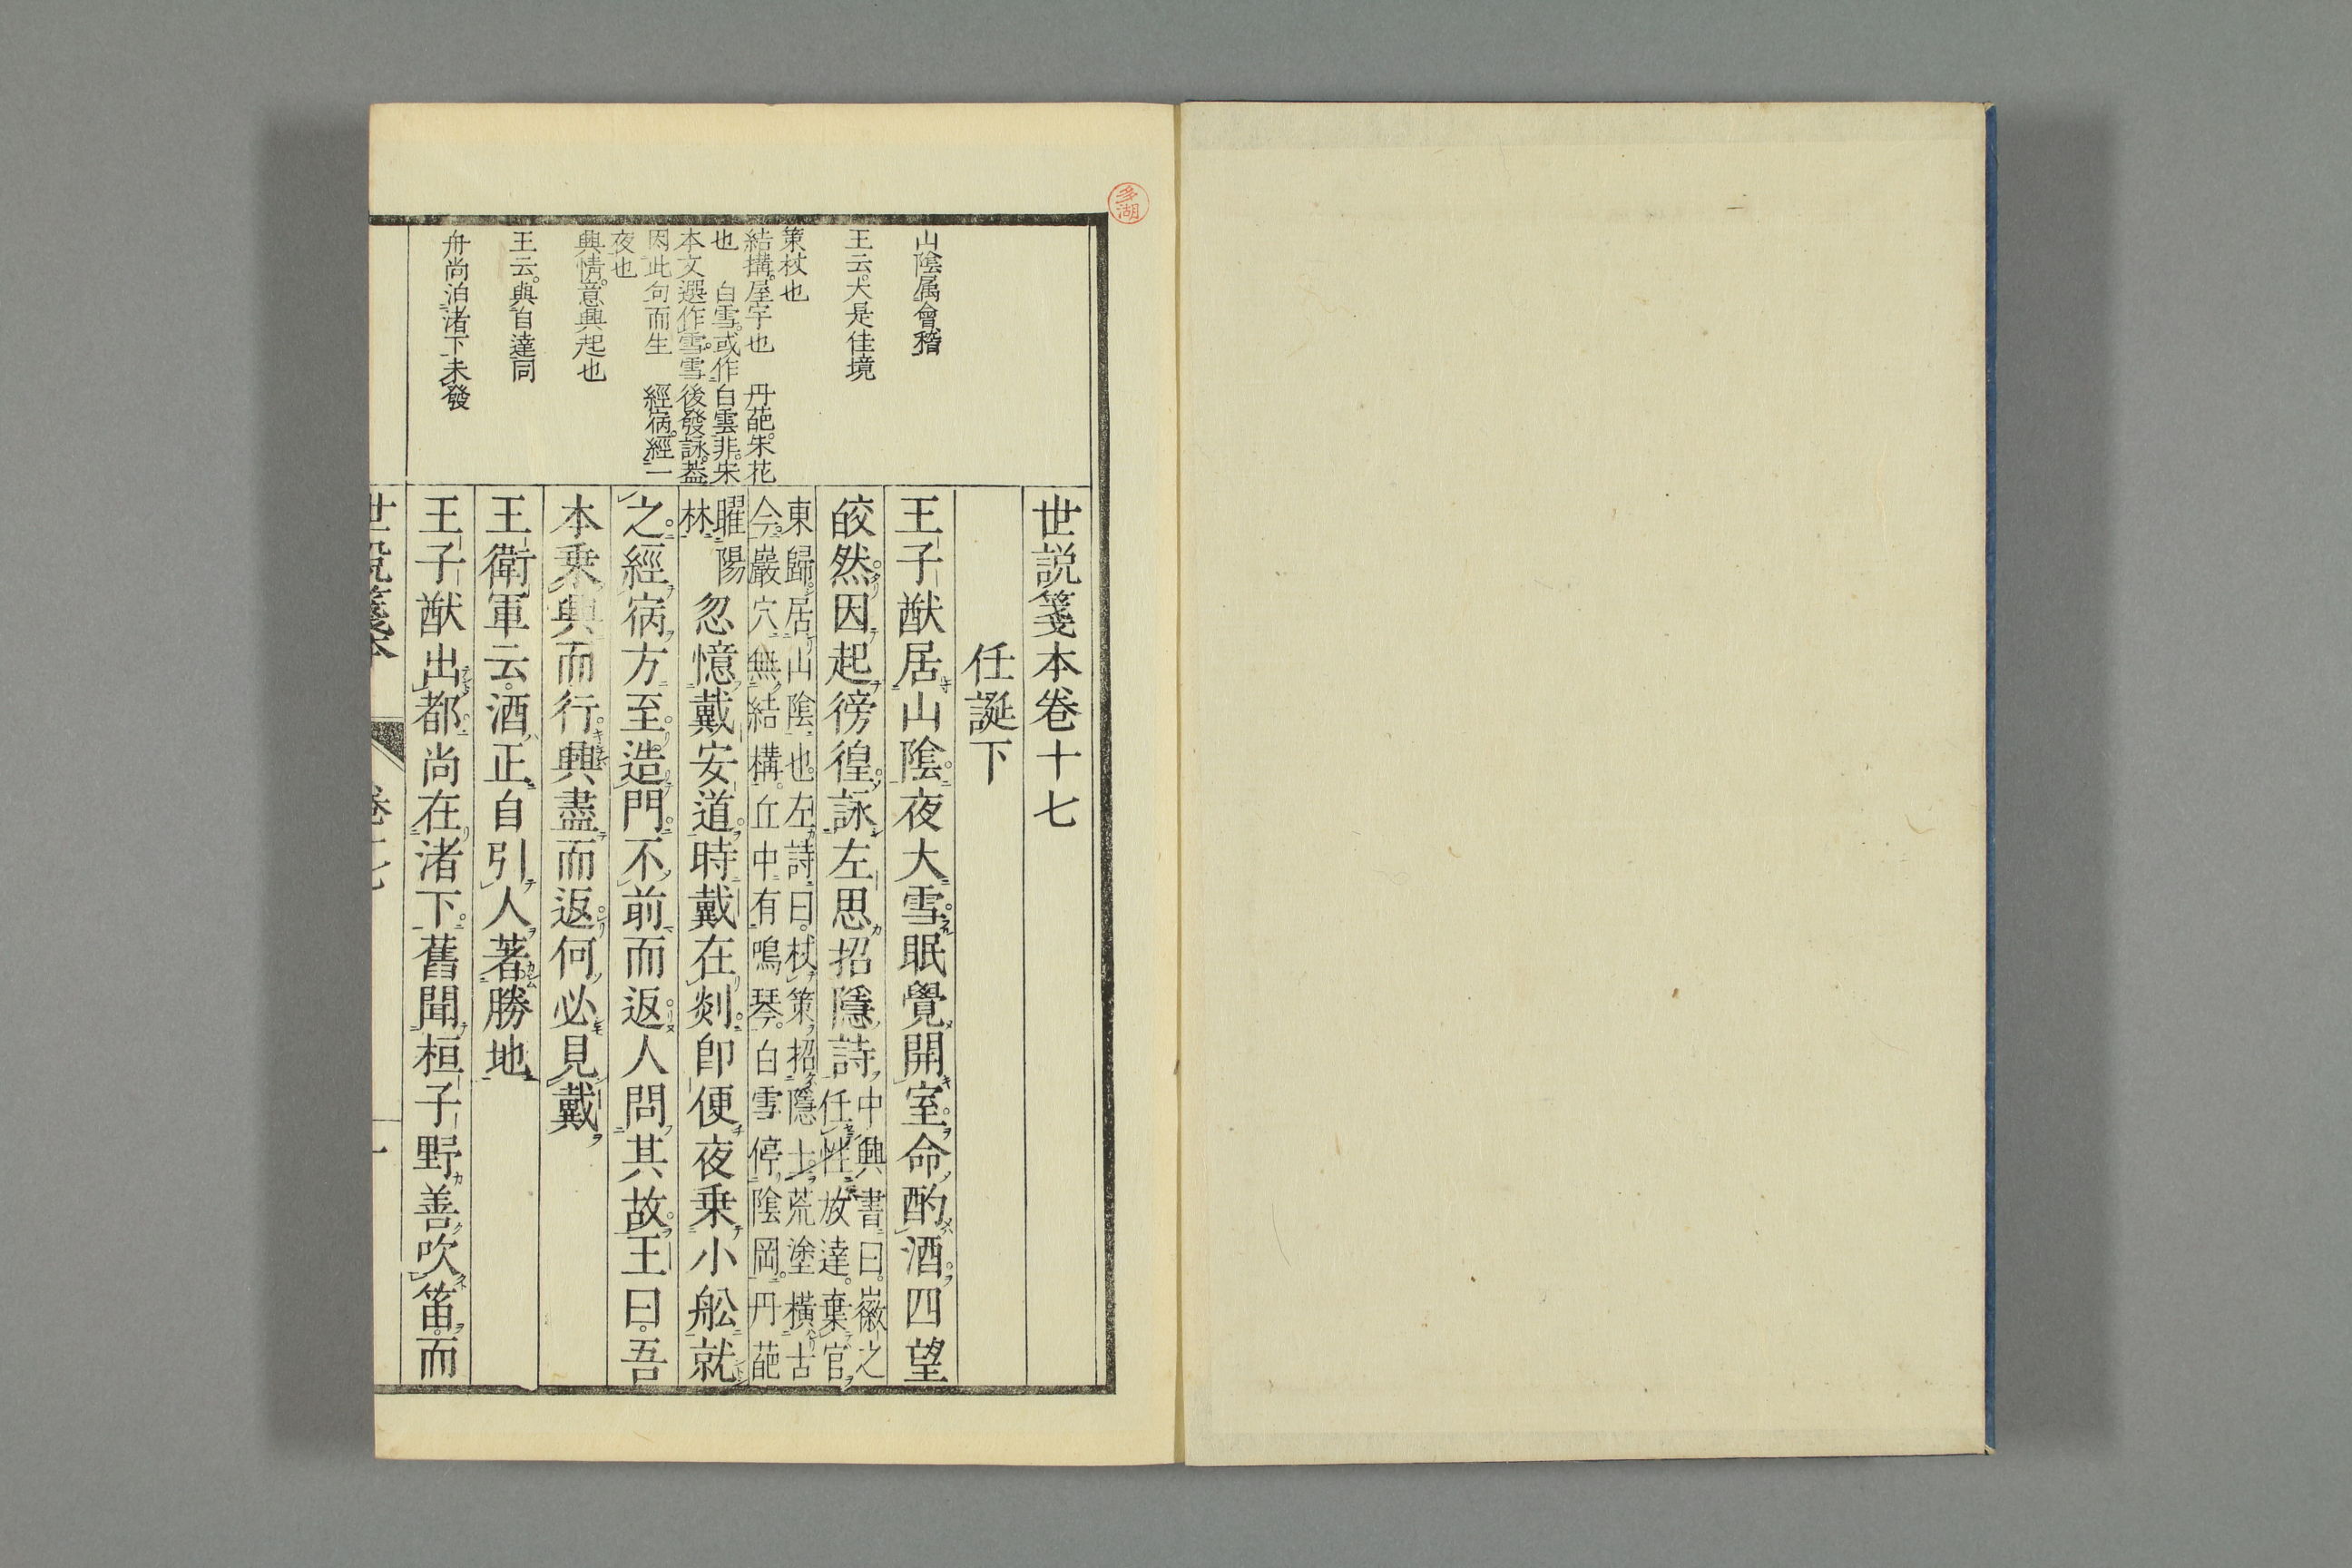 多湖
世説箋本卷十七
任誕下
王子猷居山陰夜大雪眠覺開室命酌酒四望
皎然因起徬徨詠左思招隱詩中興書曰徽之任性放達棄官
東歸居山陰也左詩曰杖策招隱士荒塗橫古
今巖穴無結構丘中有鳴琴白雪停陰岡丹葩
曜陽林忽憶戴安道時戴在剡卽便夜乗小舩就
之經病方至造門不前而返人問其故王曰吾
本乗興而行興盡而返何必見戴
王衛軍云酒正自引人著勝地
王子猷出都尚在渚下舊聞桓子野善吹笛而
山陰属會稽
王云大是佳境
策杖也
結搆屋宇也 丹葩朱花
也 白雪或作白雲非朱
本文選作雪雪後發詠葢
因此句而生 經病經一
夜也
興情意興起也
王云與自達同
舟尚泊渚下未發
世説箋本 卷十七 一